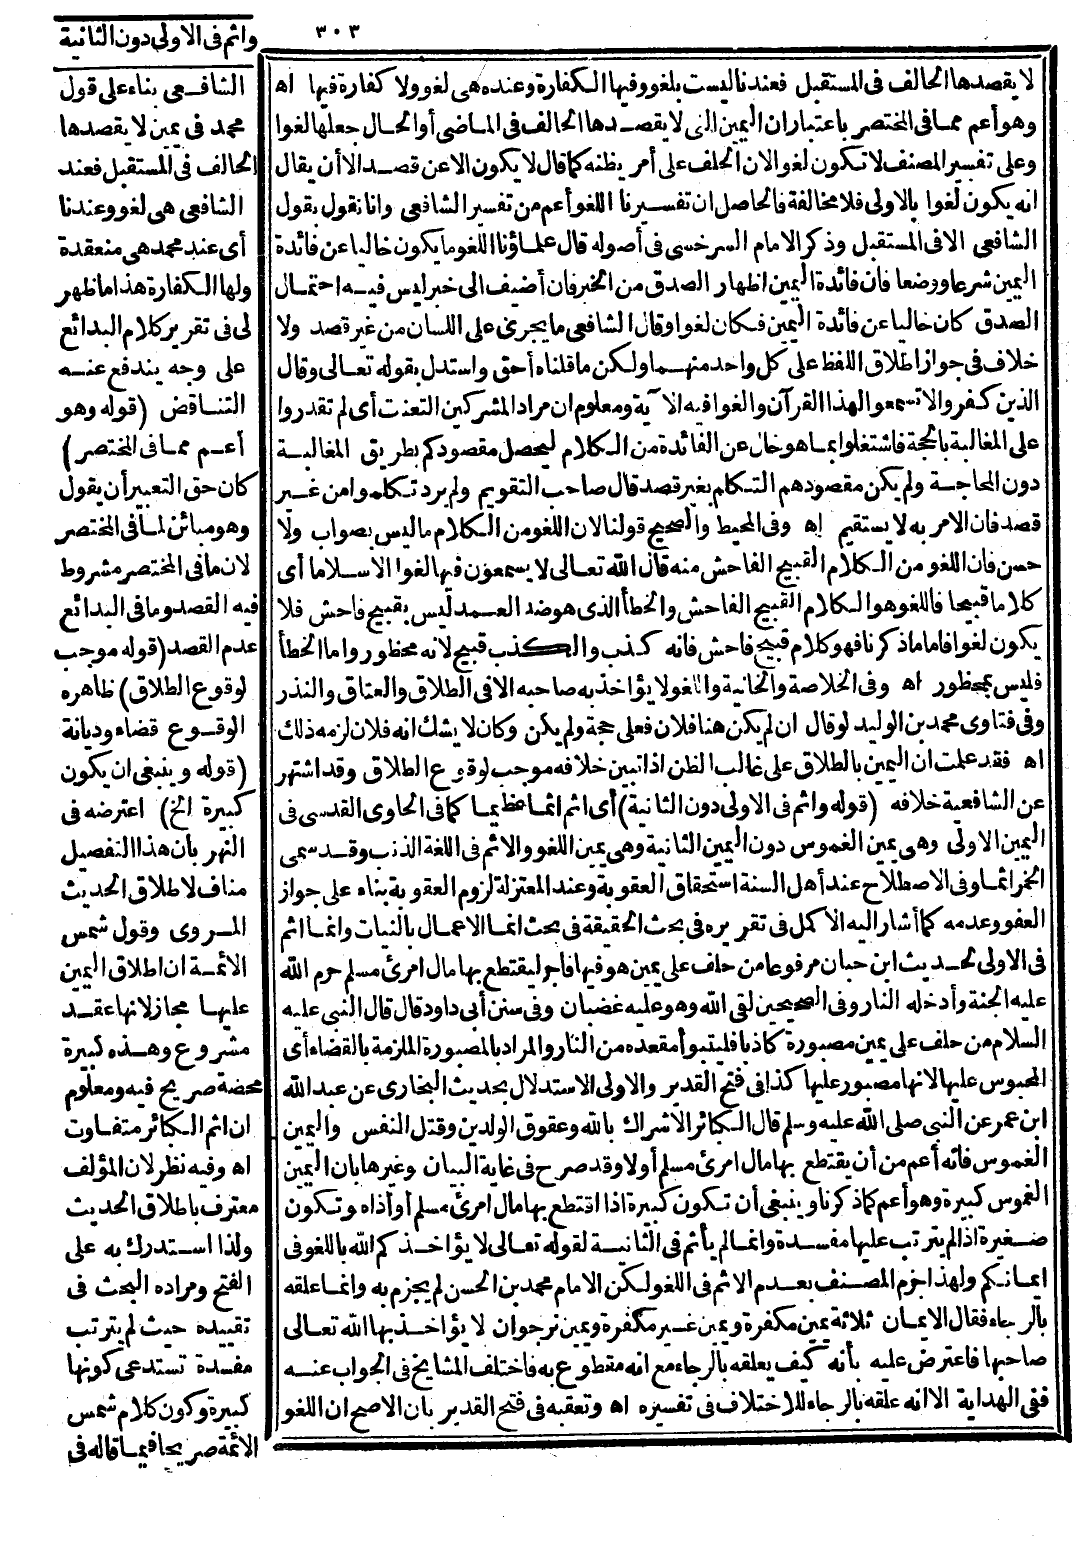 ٣٠٣
لا يقصدها الحالف فى المستقبل فعندنا ليست بلغو وفيها الكفارة وعنده هى لغو ولا كفارة فيها اه
وهو أعم مما فى المختصر باعتبار ان اليمين التى لا يقصدها الحالف فى الماضى أو الحال جعلها لغوا
وعلى تفسير المصنف لا تكون لغوا لان الحلف على أمر يظنه كما قال لا يكون الا عن قصد الا أن يقال
انه يكون لغوا بالاولى فلا مخالفة فالحاصل ان تفسيرنا اللغو أعم من تفسير الشافعى وانا نقول بقول
الشافعى الا فى المستقبل وذكر الامام السرخسى فى أصوله قال علماؤنا اللغو ما يكون خاليا عن فائدة
اليمين شرعا ووضعا فان فائدة اليمين اظهار الصدق من الخبر فان أضيف الى خبر ليس فيه احتمال
الصدق كان خاليا عن فائدة اليمين فكان لغوا وقال الشافعى ما يجرى على اللسان من غير قصد ولا
خلاف فى جواز اطلاق اللفظ على كل واحد منهما ولكن ما قلناه أحق واستدل بقوله تعالى وقال
الذين كفروا لا تسمعوا لهذا القرآن والغوا فيه الآية ومعلوم ان مراد المشركين التعنت أى لم تقدروا
على المغالبة بالحجة فاشتغلوا بما هو خال عن الفائدة من الكلام ليحصل مقصودكم بطريق المغالبة
دون المحاجة ولم يكن مقصودهم التكلم بغير قصد قال صاحب التقويم ولم يرد تكلموا من غير
قصد فان الامر به لا يستقيم اه وفى المحيط والصحيح قولنا لان اللغو من الكلام ما ليس بصواب ولا
حسن فان اللغو من الكلام القبيح الفاحش منه قال الله تعالى لا يسمعون فيها لغوا الا سلاما أى
كلاما قبيحا فاللغو هو الكلام القبيح الفاحش والخطأ الذى هو ضد العمد ليس بقبيح فاحش فلا
يكون لغوا فاما ما ذكرنا فهو كلام قبيح فاحش فانه كذب والكذب قبيح لانه محظور واما الخطأ
فليس بمحظور اه وفى الخلاصة والخانية واللغو لا يؤاخذ به صاحبه الا فى الطلاق والعتاق والنذر
وفى فتاوى محمد بن الوليد لو قال ان لم يكن هنا فلان فعلى حجة ولم يكن وكان لا يشك انه فلان لزمه ذلك
اه فقد علمت ان اليمين بالطلاق على غالب الظن اذا تبين خلافه موجب لوقوع الطلاق وقد اشتهر
عن الشافعية خلافه (قوله واثم فى الاولى دون الثانية) أى اثم اثما عظيما كما فى الحاوى القدسى فى
اليمين الاولى وهى يمين الغموس دون اليمين الثانية وهى يمين اللغو والاثم فى اللغة الذنب وقد سمى
الخمر اثما وفى الاصطلاح عند أهل السنة استحقاق العقوبة وعند المعتزلة لزوم العقوبة بناء على جواز
العفو وعدمه كما أشار اليه الاكمل فى تقريره فى بحث الحقيقة فى بحث انما الاعمال بالنيات وانما اثم
فى الاولى لحديث ابن حبان مرفوعا من حلف على يمين هو فيها فاجر ليقتطع بها مال امرئ مسلم حرم الله
عليه الجنة وأدخله النار وفى الصحيحين لقى الله وهو عليه غضبان وفى سنن أبى داود قال قال النبى عليه
السلام من حلف على يمين مصبورة كاذبا فليتبوأ مقعده من النار والمراد بالمصبورة الملزمة بالقضاء أى
المحبوس عليها لانها مصبور عليها كذا فى فتح القدير والاولى الاستدلال بحديث البخارى عن عبد الله
ابن عمر عن النبى صلى الله عليه وسلم قال الكبائر الاشراك بالله وعقوق الوالدين وقتل النفس واليمين
الغموس فانه أعم من أن يقتطع بها مال امرئ مسلم أو لا وقد صرح فى غاية البيان وغيرها بان اليمين
الغموس كبيرة وهو أعم كما ذكرنا وينبغى أن تكون كبيرة اذا اقتطع بها مال امرئ مسلم أو آذاه وتكون
صغيرة اذا لم يترتب عليها مفسدة وانما لم يأثم فى الثانية لقوله تعالى لا يؤاخذكم الله باللغو فى
ايمانكم ولهذا جزم المصنف بعدم الاثم فى اللغو لكن الامام محمد بن الحسن لم يجزم به وانما علقه
بالرجاء فقال الايمان ثلاثة يمين مكفرة ويمين غير مكفرة ويمين نرجو ان لا يؤاخذ بها الله تعالى
صاحبها فاعترض عليه بأنه كيف يعلقه بالرجاء مع انه مقطوع به فاختلف المشايخ فى الجواب عنه
ففى الهداية الا انه علقه بالرجاء للاختلاف فى تفسيره اه وتعقبه فى فتح القدير بان الاصح ان اللغو
واثم فى الاولى دون الثانية
الشافعى بناء على قول
محمد فى يمين لا يقصدها
الحالف فى المستقبل فعند
الشافعى هى لغو وعندنا
أى عند محمد هى منعقدة
ولها الكفارة هذا ما ظهر
لى فى تقرير كلام البدائع
على وجه يندفع عنه
التناقض (قوله وهو
أعم مما فى المختصر)
كان حق التعبير أن يقول
وهو مباين لما فى المختصر
لان ما فى المختصر مشروط
فيه القصد وما فى البدائع
عدم القصد (قوله موجب
لوقوع الطلاق) ظاهره
الوقوع قضاء وديانة
(قوله وينبغى ان يكون
كبيرة الخ) اعترضه فى
النهر بان هذا التفصيل
مناف لاطلاق الحديث
المروى وقول شمس
الأئمة ان اطلاق اليمين
عليها مجاز لانها عقد
مشروع وهذه كبيرة
محضة صريح فيه ومعلوم
ان اثم الكبائر متفاوت
اه وفيه نظر لان المؤلف
معترف باطلاق الحديث
ولذا استدرك به على
الفتح ومراده البحث فى
تقييده حيث لم يترتب
مفسدة تستدعى كونها
كبيرة وكون كلام شمس
الائمة صريحا فيما قاله فى